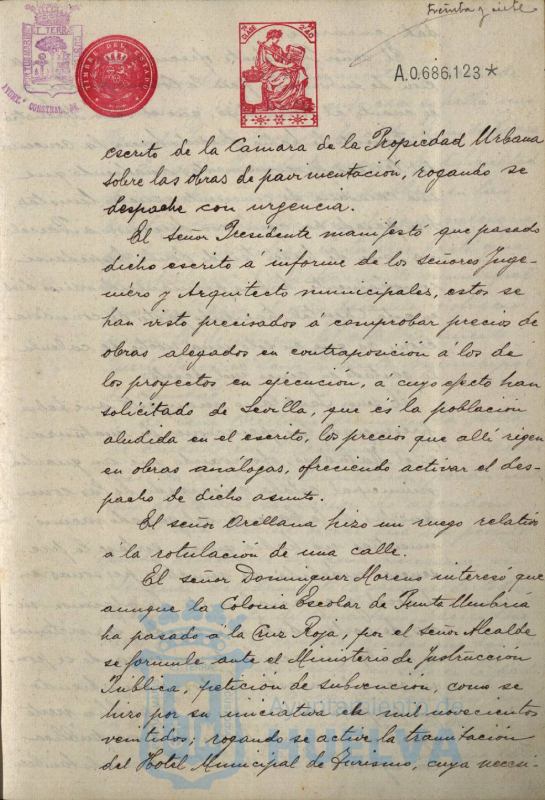 treinta y siete
TIMBRE DEL ESTADO
CLASE 8ª
A.0.686,123*
escrito de la Cámara de la Propiedad Urbana
sobre las obras de pavimentación, rogando se
despache con urgencia.
El señor Presidente manifestó que pasado
dicho escrito á informe de los señores Inge-
niero y Arquitecto municipales, estos se
han visto precisados á comprobar precios de
obras alegados en contraposición á los de
los proyectos en ejecución, á cuyo efecto han
solicitado de Sevilla, que és la población
aludida en el escrito, los precios que allí rigen
en obras análogas, ofreciendo activar el des-
pacho de dicho asunto.
El señor Orellana hizo un ruego relativo
á la rotulación de una calle.
El señor Dominguez Moreno interesó que
aunque la Colonia Escolar de Punta Umbría
ha pasado a la Cruz Roja, por el señor Alcalde
se formule ante el Ministerio de Instrucción
Pública, petición de subvención, como se
hizo por su iniciativa en mil novecientos
veintidos; rogando se active la tramitación
del Hotel Municipal de Turismo, cuya necesi-
Ayuntamiento de
HUELVA